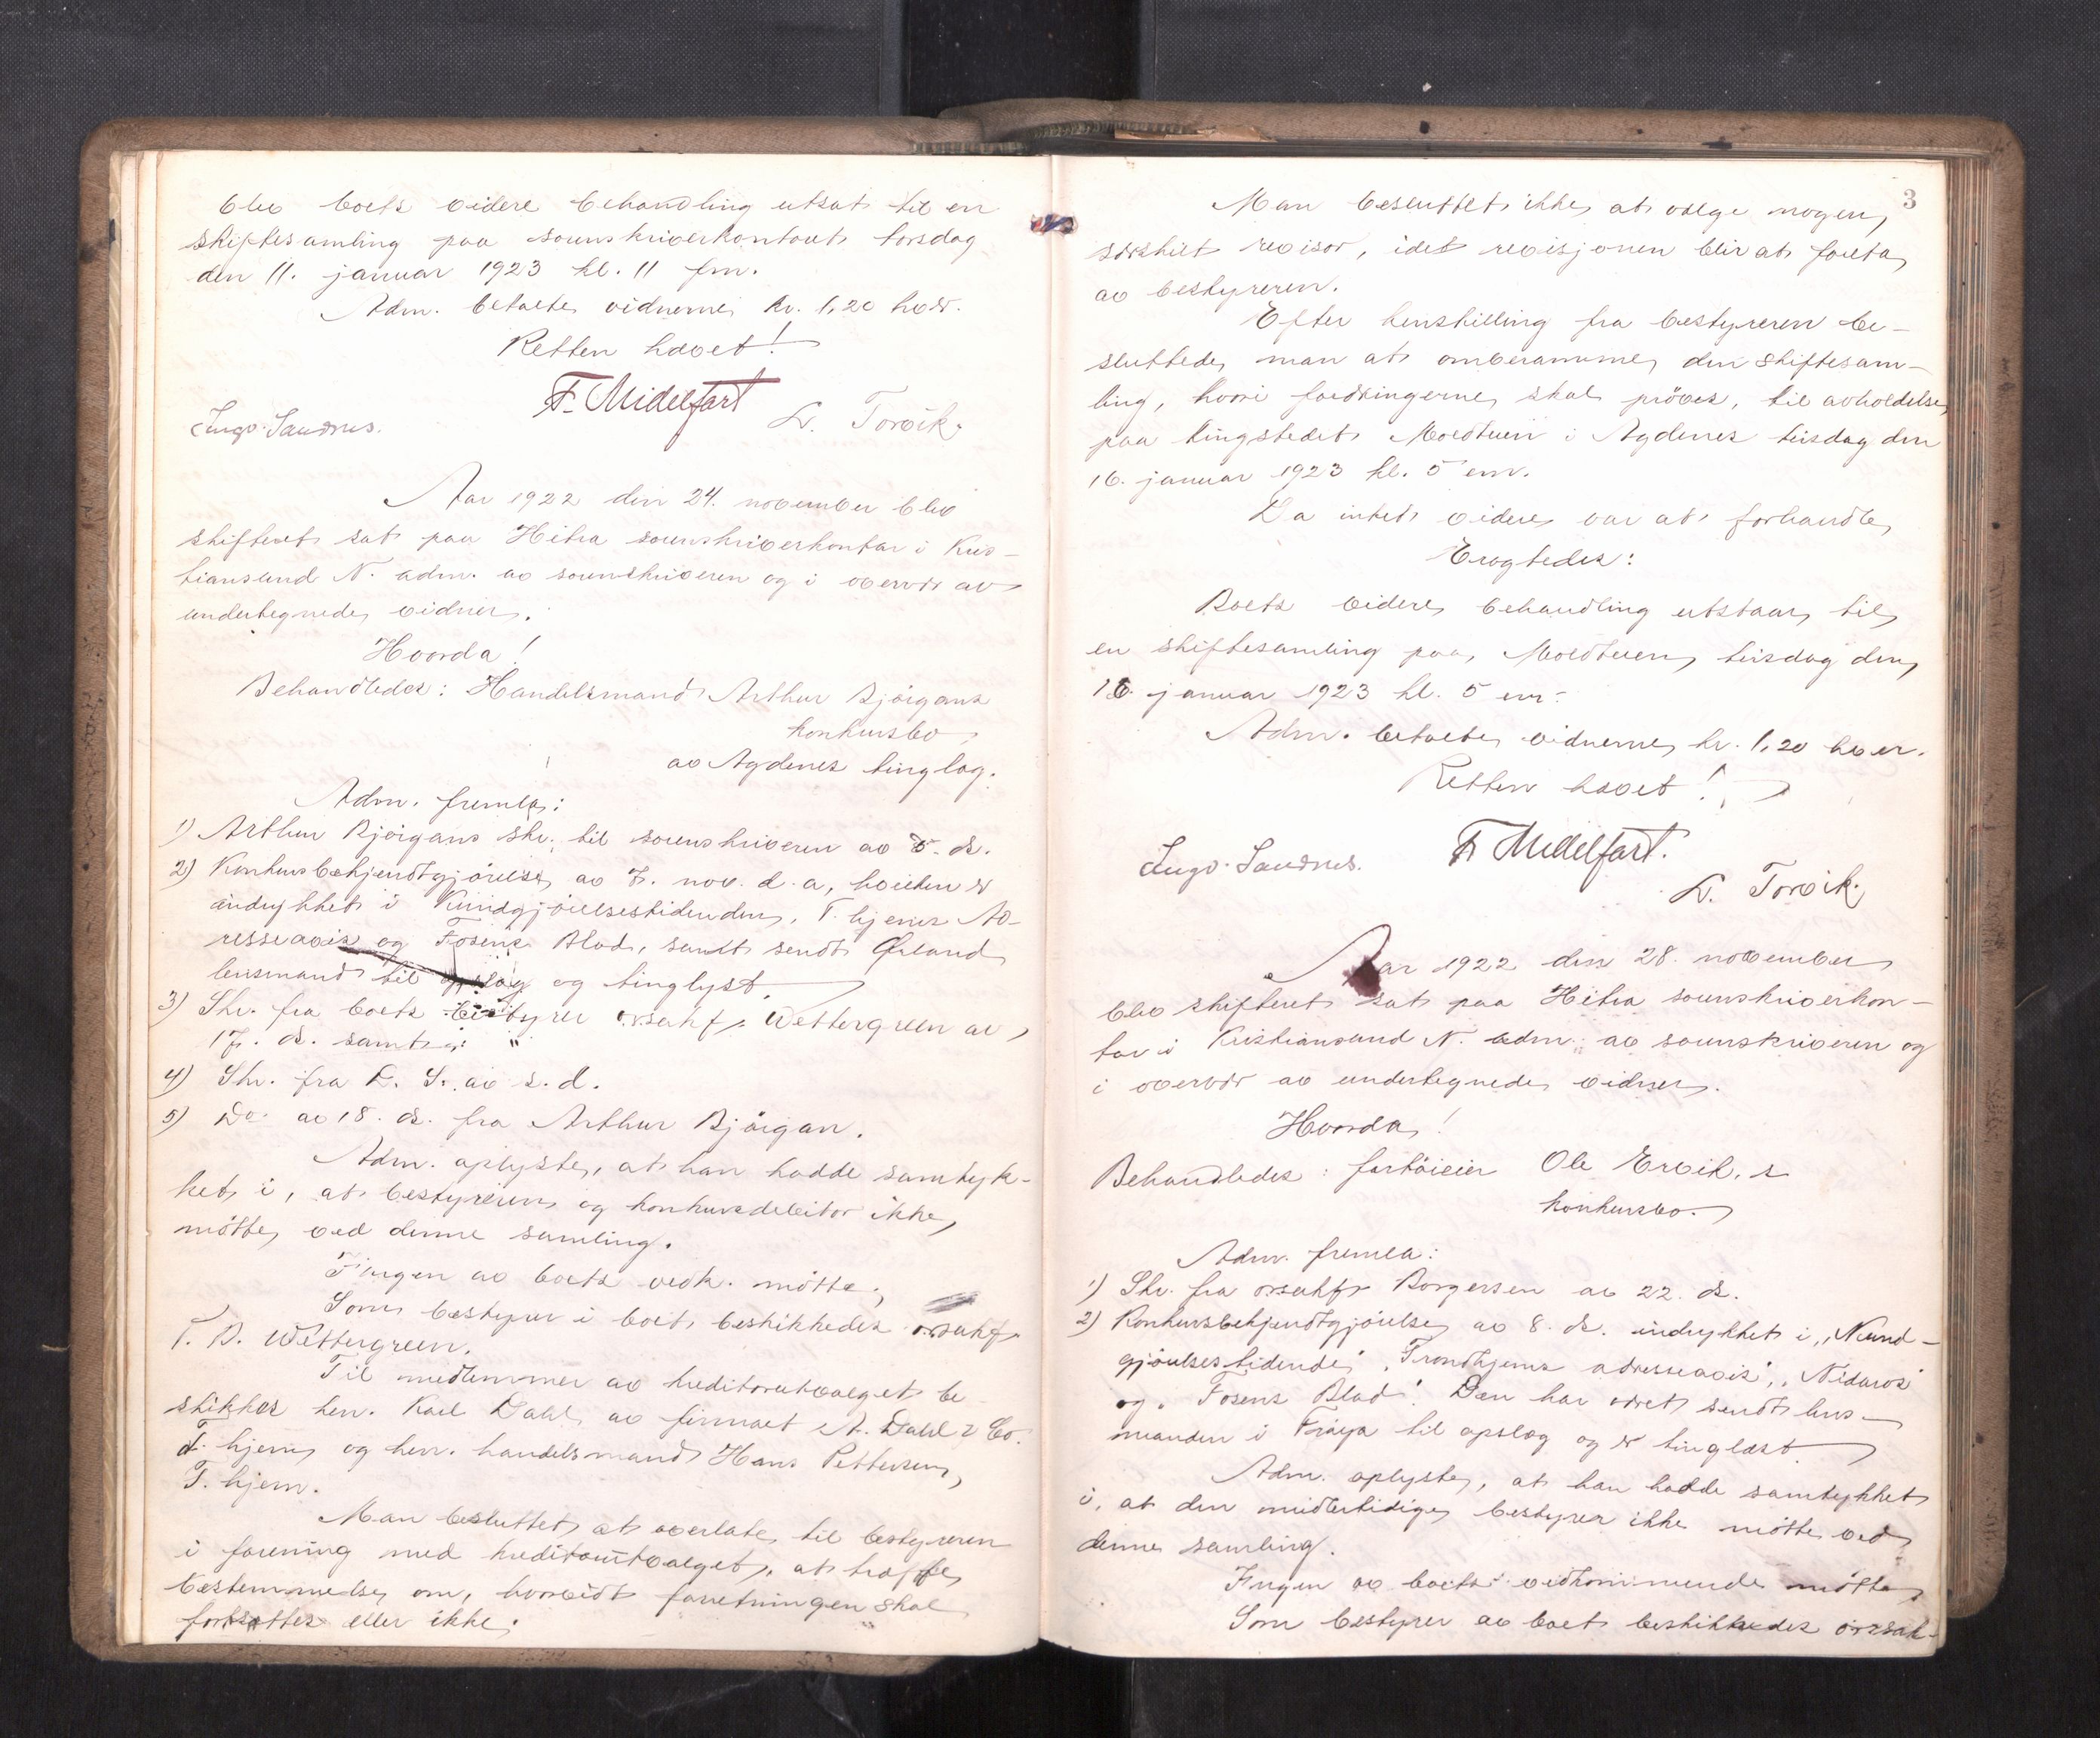 blev boets videre behandling utsat til en
skiftesamling paa sorenskriverkontoret torsdag
den 11. januar 1923 kl. 11 fm.
Adm. betalte vidnerne kr. 1,20 hver.
Retten hævet!
F. Midelfart
Ingv. Sandnes.
L. Torvik.
Aar 1922 den 24. november blev
skifteret sat paa Hitra sorenskriverkontor i Kris-
tiansund N. adm. av sorenskriveren og i overvær av
undertegnede vidner.
Hvorda!
Behandledes: Handelsmand Arthur Bjørgans
konkursbo
av Agdenes tinglag.
Adm. fremla:
1) Arthur Bjørgans skr. til sorenskriveren av 5. ds.
2) Konkursbekjendtgjørelse av 7. nov. d. a, hvilken er
indrykket i Kundgjørelsestidenden, T.hjems Ad-
resseavis og Fosens Blad, samt sendt Ørland
lensmand til opslag og tinglyst.
3) Skr. fra boets bestyrer o.r.sakf. Wettergreen av
17. ds. samt
4) Skr. fra D. S. av s. d.
5) Do. av 18. ds. fra Arthur Bjørgan.
Adm. oplyste, at han hadde samtyk-
ket i, at bestyreren og konkursdebitor ikke
møtte ved denne samling.
Ingen av boets vedk. møtte.
Som bestyrer i boet beskikkedes o.r.sakf.
T. B. Wettergreen.
Til medlemmer av kreditorutvalget be-
skikkes herr. Karl Dahl av firmaet A. Dahl & Co.
T.hjem og herr. handelsmand Hans Pettersen,
T.hjem.
Man besluttet at overlate til bestyreren
i forening med kreditorutvalget, at træffe
bestemmelse om, hvorvidt forretningen skal
fortsættes eller ikke.
3
Man besluttet ikke at vælge nogen
særskilt revisor, idet revisjonen blir at foreta
av bestyreren.
Efter henstilling fra bestyreren be-
sluttede man at omberamme den skiftesam-
ling, hvori fordringerne skal prøves, til avholdelse
paa tingstedet Moldtuen i Agdenes tirsdag den
16. januar 1923 kl. 5 em.
Da intet videre var at forhandle
Eragtedes:
Boets videre behandling utstaar til
en skiftesamling paa Moldtuen tirsdag den
16. januar 1923 kl. 5 em.
Adm. betalte vidnerne kr. 1,20 hver.
Retten hævet!
Ingv. Sandnes.
F. Midelfart.
L. Torvik.
Aar 1922 den 28. november
blev skifteret sat paa Hitra sorenskriverkon-
tor i Kristiansund N. adm. av sorenskriveren og
i overvær av undertegnede vidner.
Hvorda!
Behandledes: fartøieier Ole Ervik, s
konkursbo.
Adm. fremla:
1) Skr. fra o.r.sakf. Borgersen av 22. ds.
2) Konkursbekjendtgjørelse av 8. ds. indrykket i „Kund-
gjørelsestidende", „Trondhjems adresseavis", „Nidaros"
og „Fosens Blad". Den har været sendt lens-
manden i Frøya til opslag og er tinglæst.
Adm. oplyste, at han hadde samtykket
i, at den midlertidige bestyrer ikke møtte ved
denne samling.
Ingen av boets vedkommende møtte
Som bestyrer av boet beskikkedes o.r.sak-